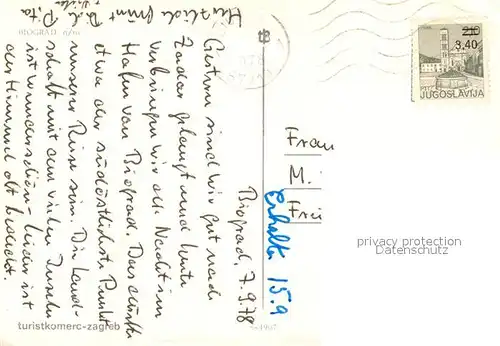 BIOGRAD
Biograd, 7.9.78
Gestern sind wir gut nach
Zadar gelangt und heute
verbringen wir die Nacht im
Hafen von Biograd. Das dürfte
etwa der südöstlichste Punkt
unserer Reise sein. Die Land-
schaft mit den vielen Inseln
ist wunderschön - leider ist
der Himmel oft bedeckt.
Herzliche
turistkomerc-zagreb
Erhalten 15.9
Frau
M.
Frei
210
3,40
JUGOSLAVIJA
privacy protection
Datenschutz